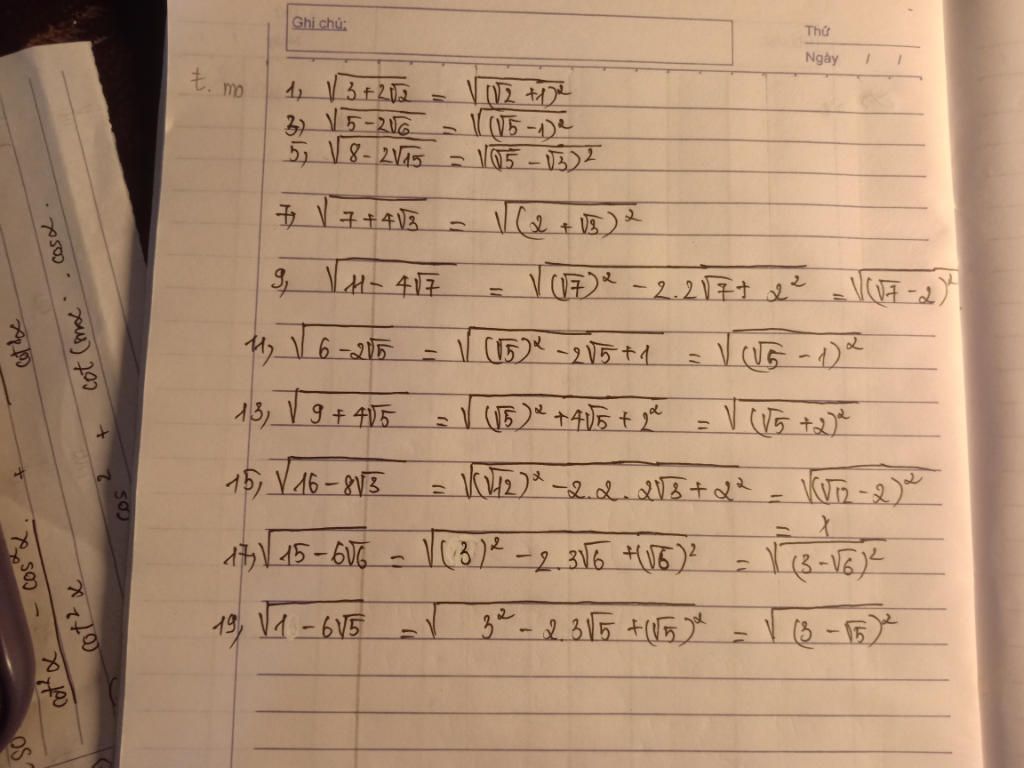 Ghi chú:
Thứ
Ngày / /
t. mo
1, √(3+2√2) = √((√2 +1)²)
3, √(5-2√6) = √((√5 -1)²)
5, √(8-2√15) = √((√5 - √3)²)
7, √(7+4√3) = √((2 + √3)²)
9, √(11- 4√7) = √((√7)² - 2.2√7 + 2²) = √((√7 - 2)²)
11, √(6 -2√5) = √((√5)² -2√5 +1) = √((√5 - 1)²)
13, √(9 + 4√5) = √((√5)² + 4√5 + 2²) = √((√5 +2)²)
15, √(16 - 8√3) = √((√12)² - 2.2.2√3 + 2²) = √((√12 - 2)²)
= x
17, √(15 - 6√6) = √((3)² - 2.3√6 +(√6)²) = √((3-√6)²)
19, √(1 - 6√5) = √(3² - 2.3√5 +(√5)²) = √((3 - √5)²)
cot²x - cos²x
cot²x
+
cos² +
cot (mx . cosx .